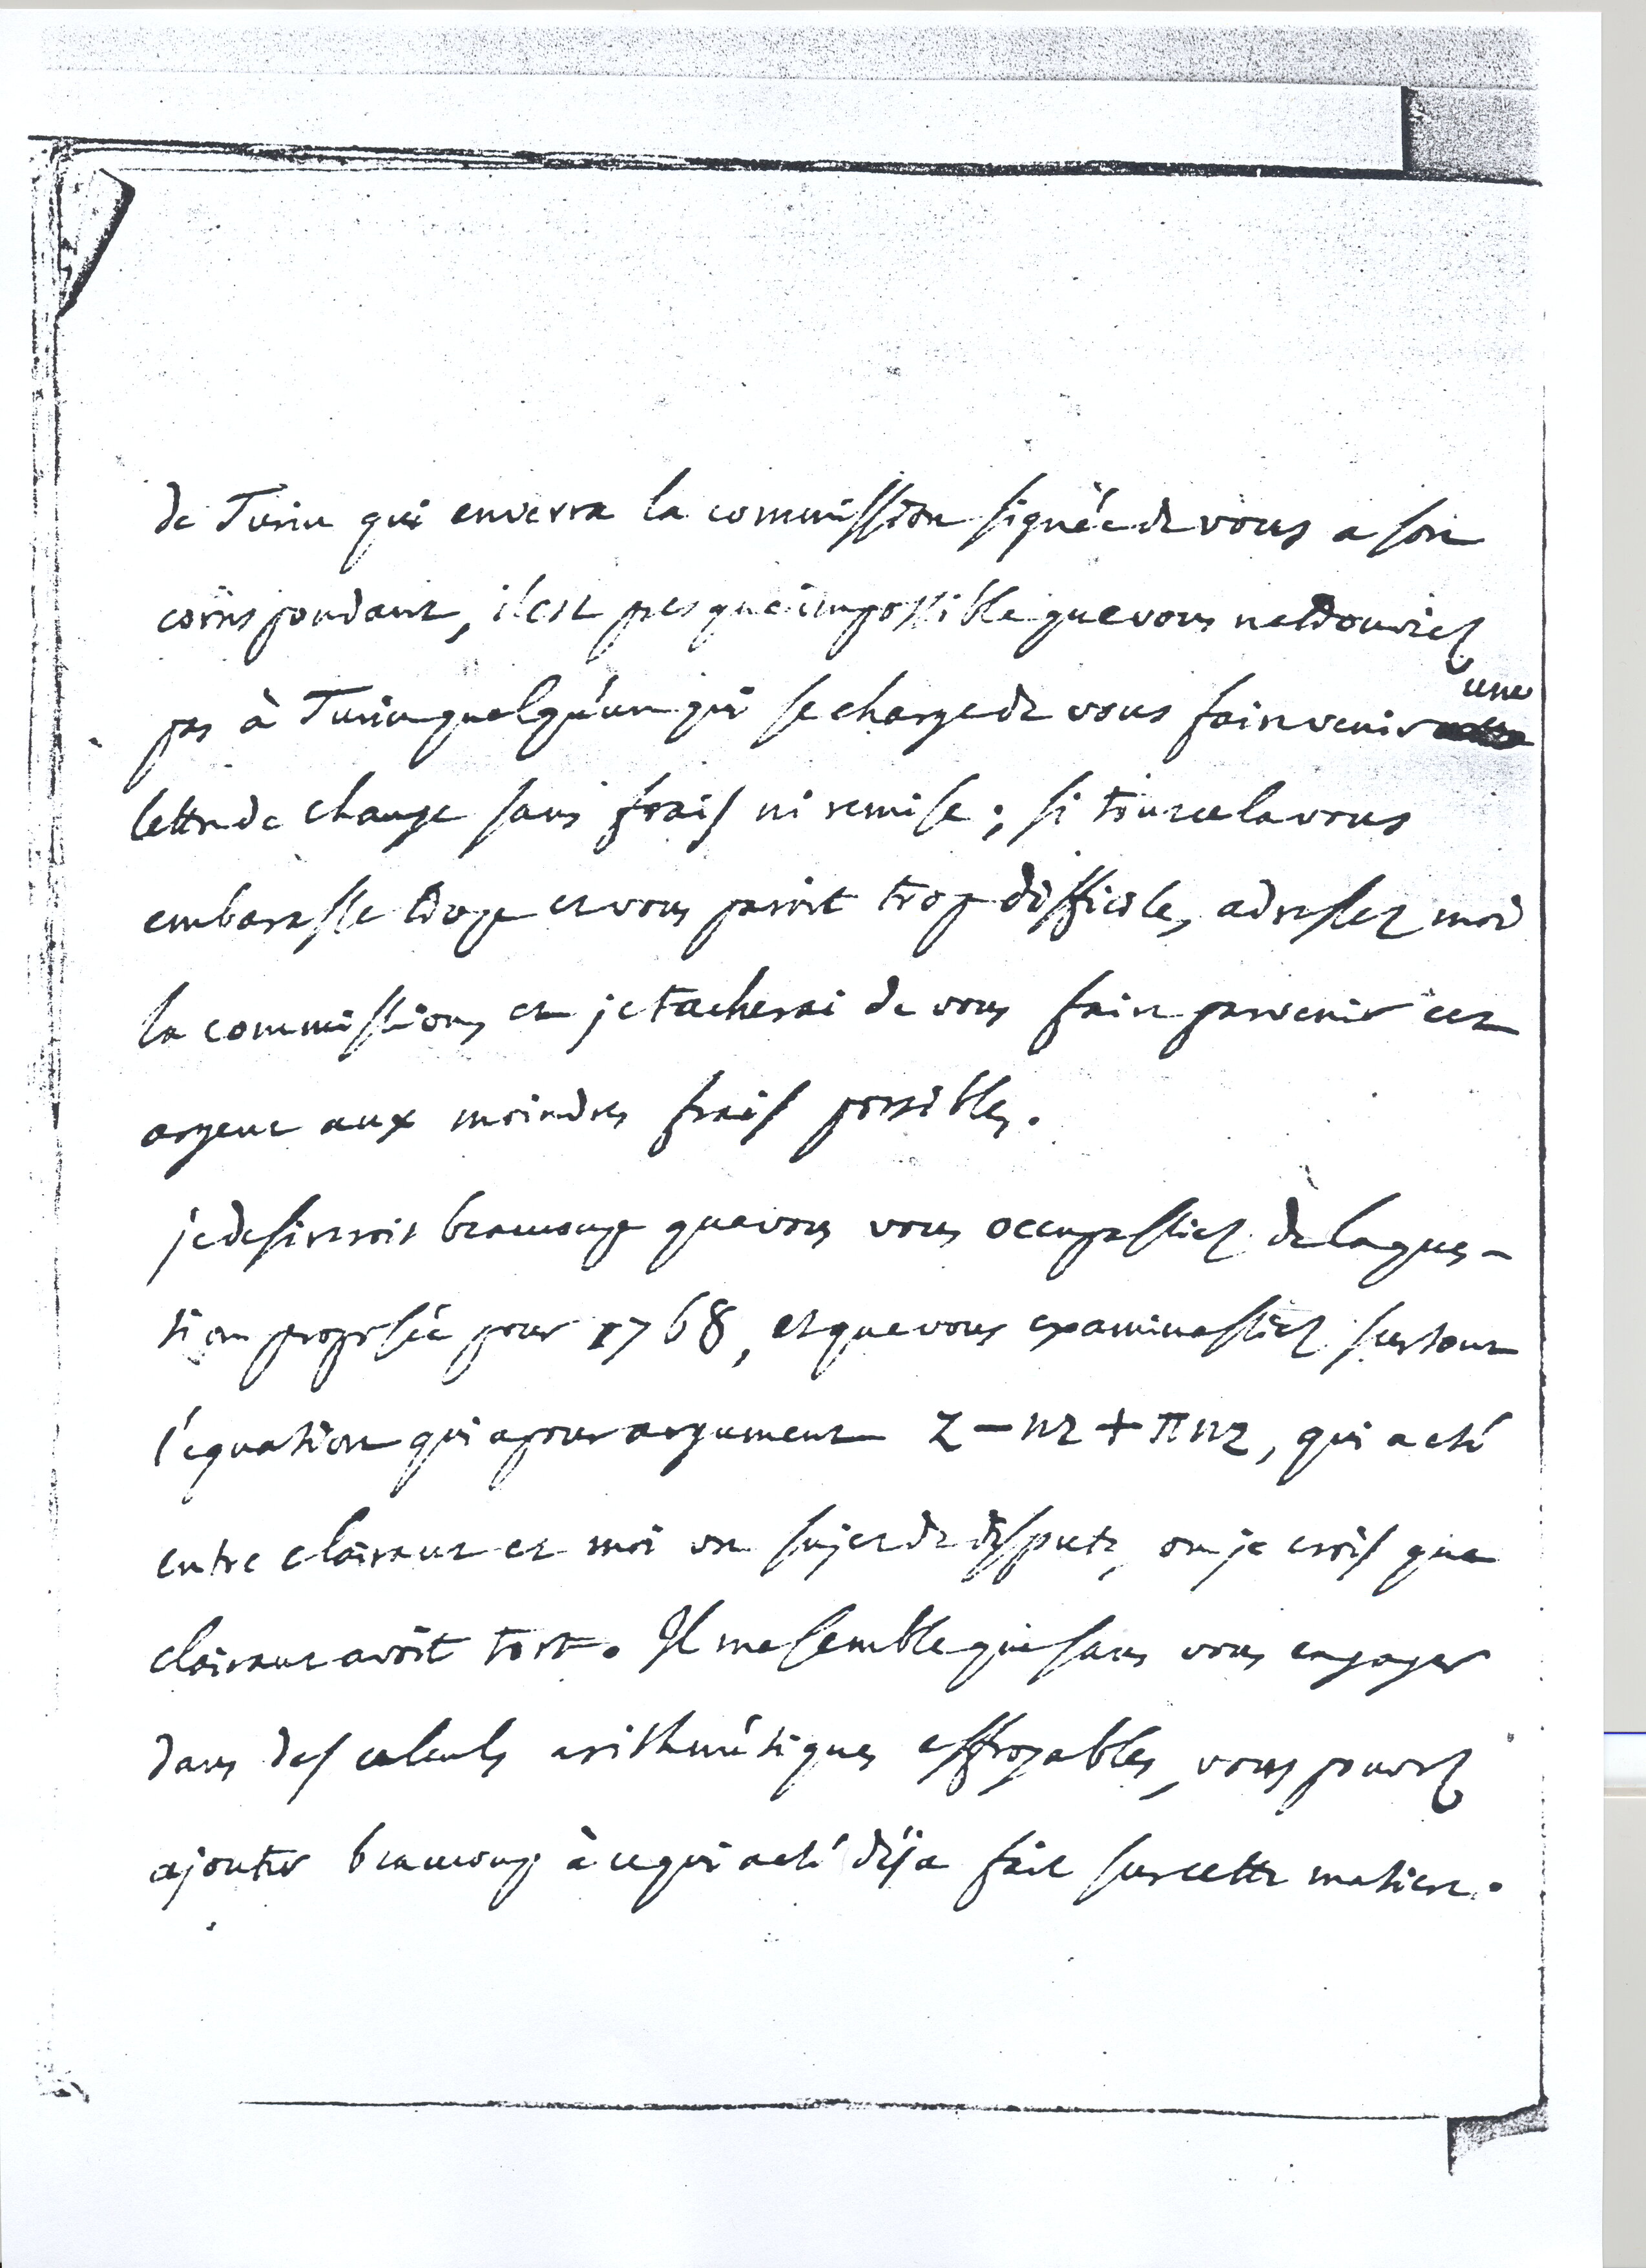 de Turin qui enverra la commission signée de vous a son
correspondant, il est presque impossible que vous ne trouviez
pas à Turin quelqu'un qui se charge de vous faire venir une
lettre de change sans frais ni remise; si tout cela vous
embarasse trop et vous paroit trop difficile, adressez moi
la commission, et je tacherai de vous faire parvenir cet
argent aux moindres frais possibles.
je desirerois beaucoup que vous vous occupassiez de la ques-
tion proposée pour 1768, et que vous examinassiez surtout
l'equation qui a pour argument z - nz + πnz, qui a eté
entre clairaut et moi un sujet de dispute, ou je crois que
clairaut avoit tort. Il me semble que sans vous engager
dans des calculs arithmétiques effroyables, vous pouvez
ajouter beaucoup à ce qui a eté déja fait sur cette matiere.